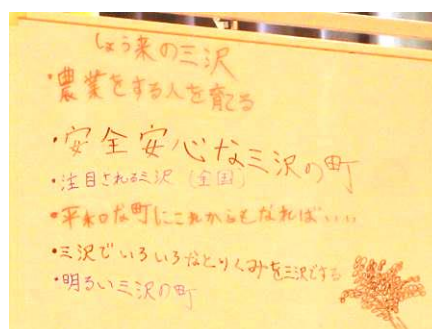 しょう来の三沢
・農業をする人を育てる
・安全安心な三沢の町
・注目される三沢（全国）
・平和な町にこれからもなれば、、、、
・三沢でいろいろなとりくみを三沢でする
・明るい三沢の町